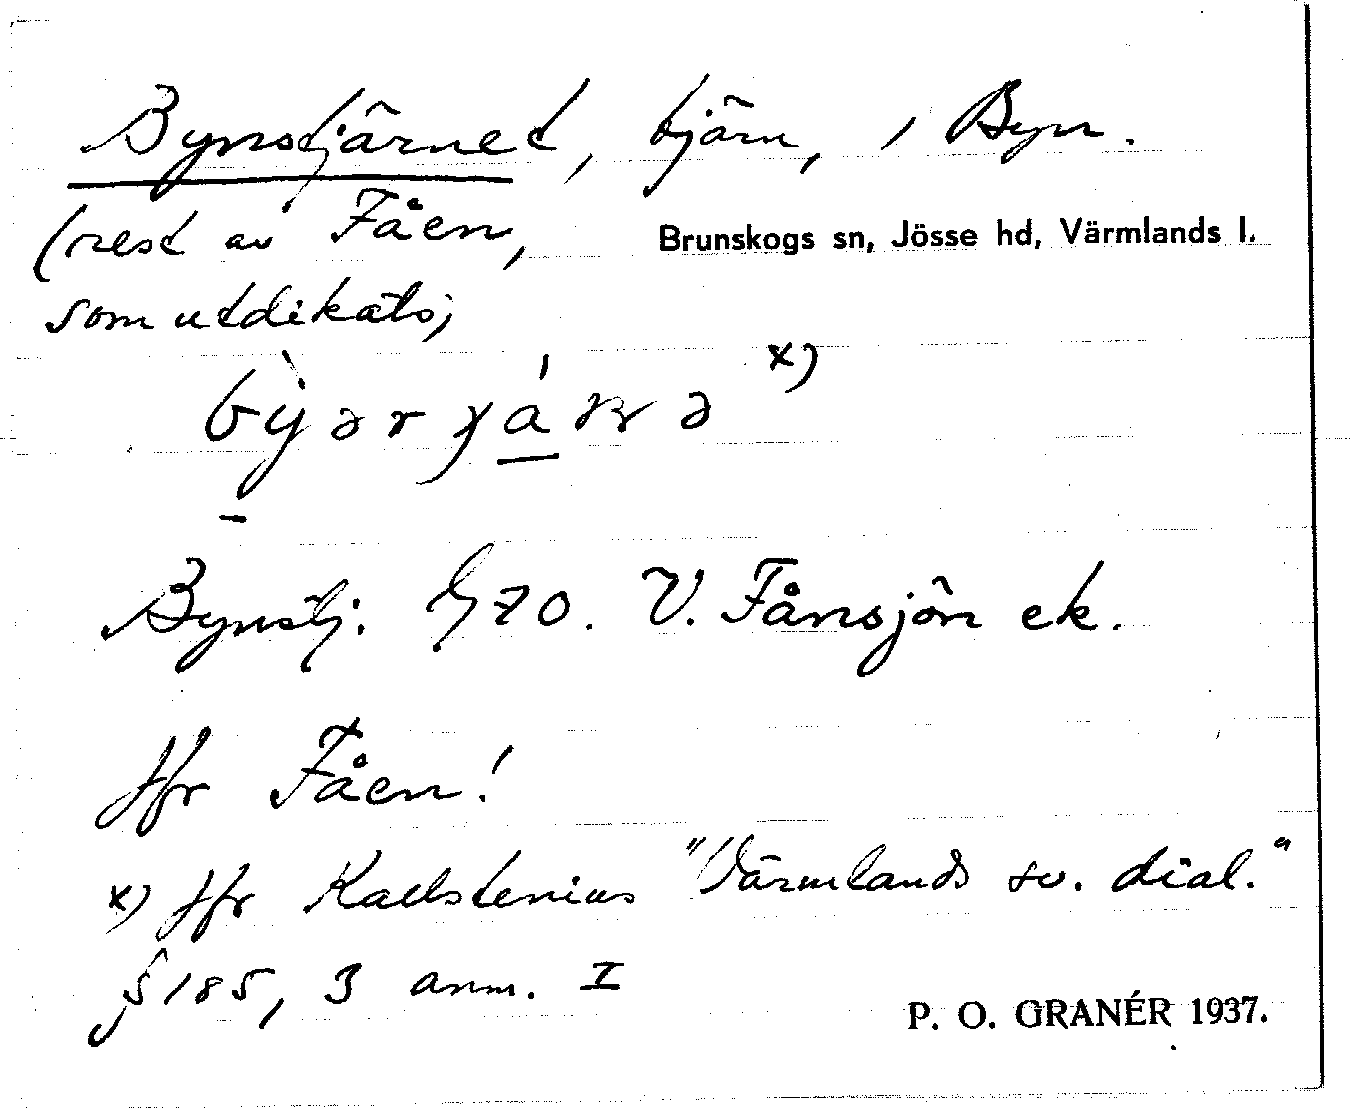 Bynstjärnet, tjärn, i Byn.
(rest av Fåen, Brunskogs sn, Jösse hd, Värmlands l.
som utdikats;
x)
Bynstj. G 70. V. Fånsjön ek.
Jfr Fåen!
x) Jfr Kallstenius "Värmlands sv. dial."
§ 185, 3 anm. I
P. O. GRANÉR 1937.